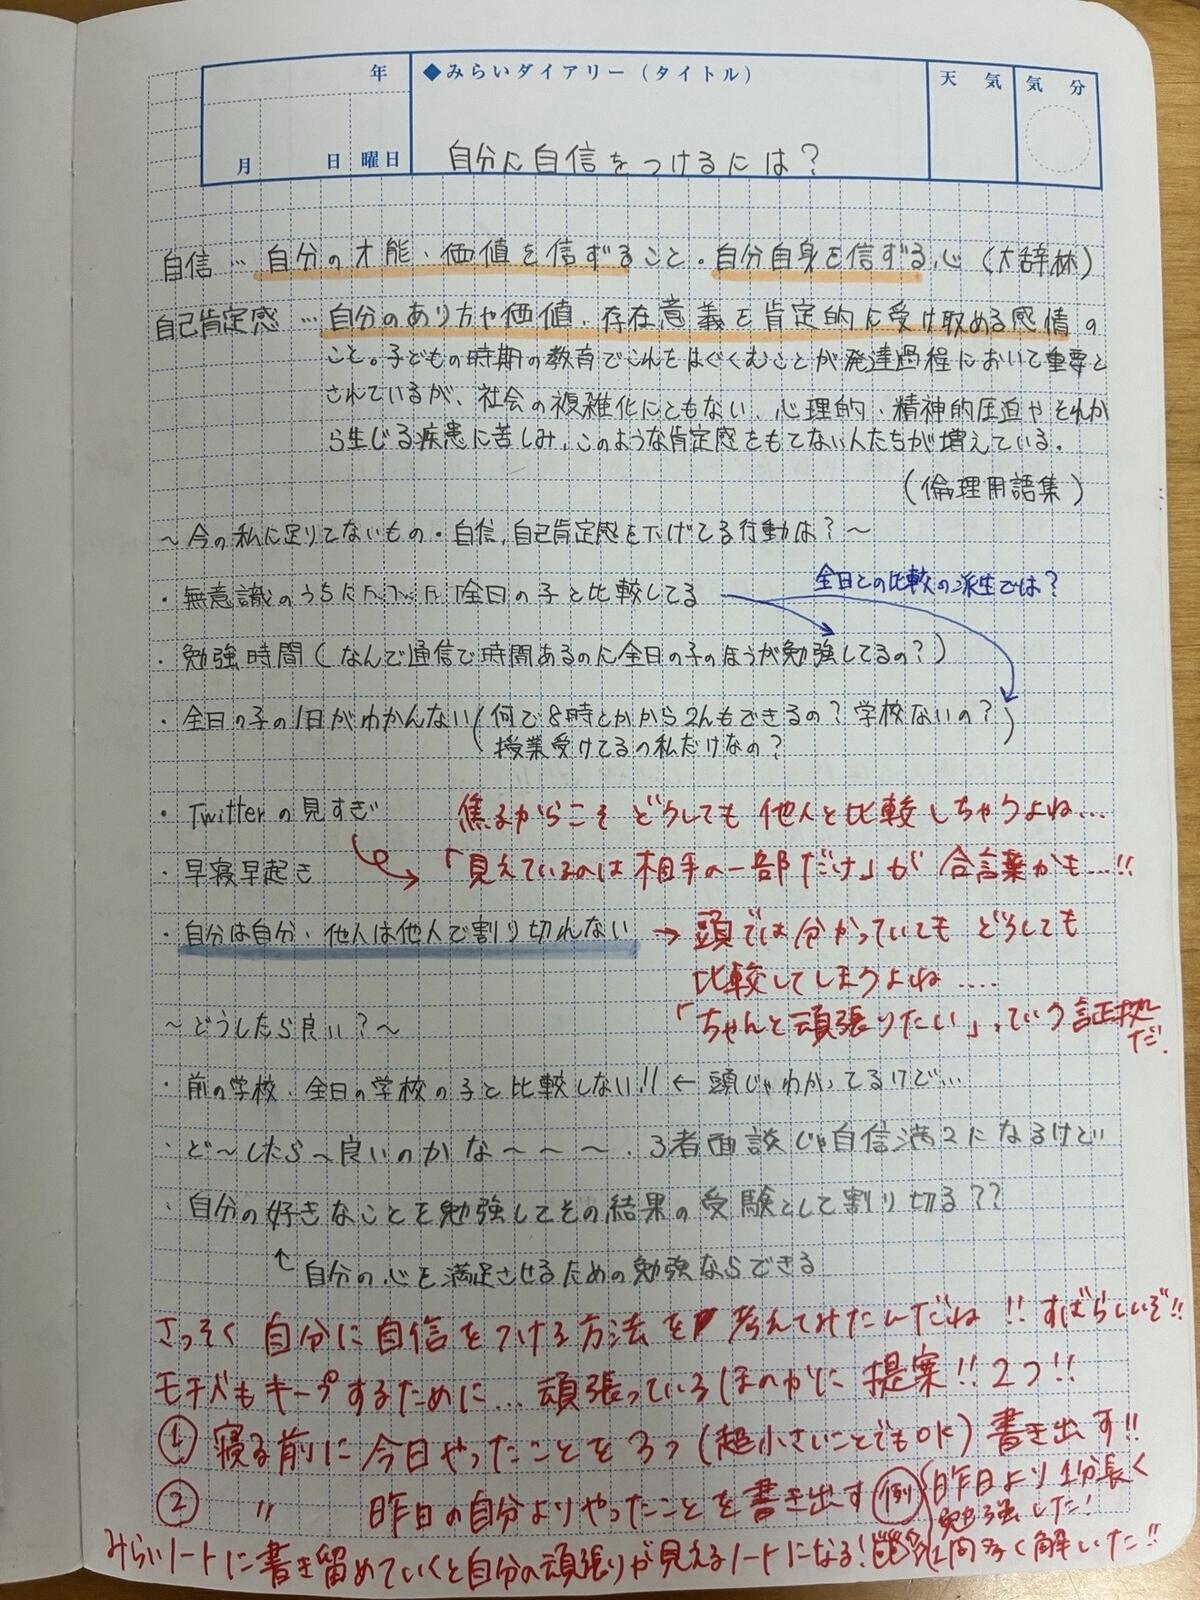 年
◆みらいダイアリー（タイトル）
天 気
気 分
月 日 曜日
自分に自信をつけるには？
自信 … 自分の才能・価値を信ずること。自分自身を信ずる心（大辞林）
自己肯定感 … 自分のあり方や価値、存在意義を肯定的に受け取める感情の
こと。子どもの時期の教育でこれをはぐくむことが発達過程において重要と
されているが、社会の複雑化にともない、心理的・精神的圧迫やそれか
ら生じる疾患に苦しみ、このような肯定感をもてない人たちが増えている。
（倫理用語集）
〜今の私に足りてないもの・自信,自己肯定感を下げてる行動は？〜
全日との比較の派生では？
・無意識のうちに 全日の子と比較してる
・勉強時間（なんで通信で時間あるのに全日の子のほうが勉強してるの？）
・全日の子の1日がわかんない（何で8時とかから2んもできるの？学校ないの？
授業受けてるの私だけなの？）
・Twitterの見すぎ
焦るからこそ どうしても 他人と比較しちゃうよね…
・早寝早起き
「見えているのは相手の一部だけ」が 合言葉かも…!!
・自分は自分・他人は他人で割り切れない
→ 頭では分かっていても どうしても
比較してしまうよね….
「ちゃんと頑張りたい」っていう証拠
だ.
〜どうしたら良い？〜
・前の学校・全日の学校の子と比較しない!! ← 頭じゃわかってるけど…
・ど〜したら〜良いのかな〜〜〜、3者面談じゃ自信満2になるけどい
・自分の好きなことを勉強してその結果の受験として割り切る？？
↑自分の心を満足させるための勉強ならできる
さっそく 自分に自信をつける方法を 考えてみたんだね!! すばらしいぞ!!
モチベもキープするために… 頑張っているほのかに 提案!! 2つ!!
① 寝る前に 今日やったことを 3つ（超小さいことでもOK）書き出す!!
② 〃 昨日の自分よりやったことを書き出す 例 昨日より1分長く
勉強した!
みらいノートに書き留めていくと自分の頑張りが見えるノートになる! 問多く解いた!!